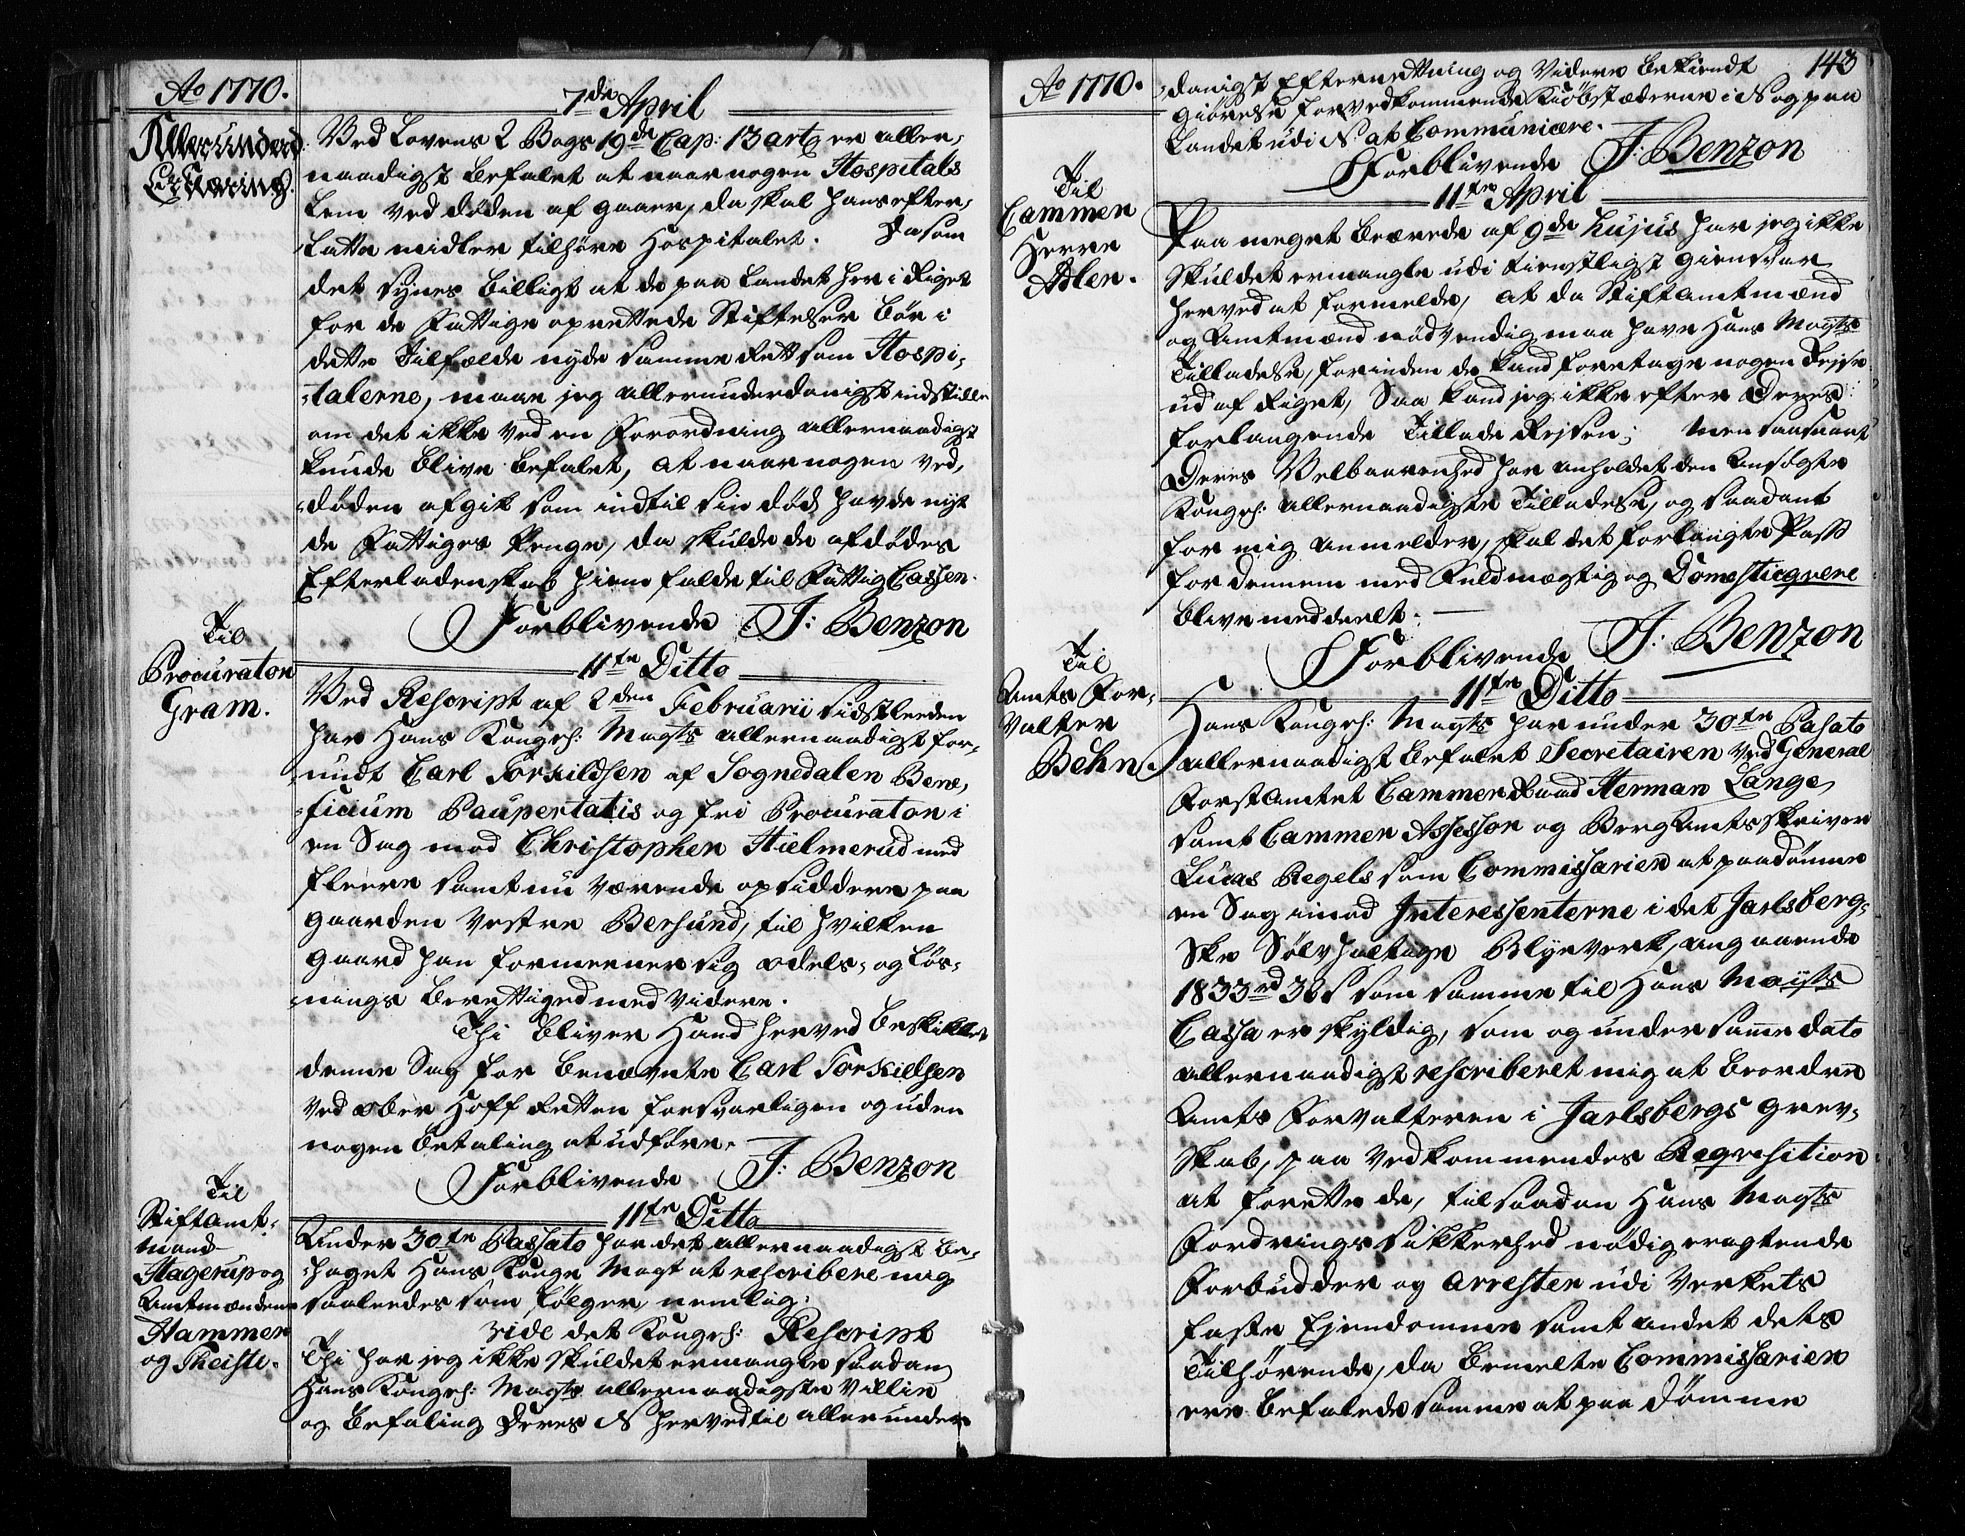 Ao 1770.
7de April
Allerunderd
Erklæring.
Ved Lovens 2 Bogs 19de Cap: 13 art er aller-
naadigst befalet at naar nogen Hospitals
Lem ved døden af gaaer, da skal hans efter-
latte midler tilhøre Hospitalet. Da som
det synes billigt at de paa Landet her i Riget
for de Fattige oprettede Stiftelser bør i
dette Tilfælde nyde samme Rett som Hospi-
talerne, maae jeg allerunderdanigst indstille
om det ikke ved en Forordning allernaadigst
kunde blive befalet, at naar nogen ved
døden afgik som indtil sin død havde nyt
de Fattiges Penge, da skulde de afdødes
Efterladenskab hiemfalde til Fattig Cassen.
Forblivende J: Benzon
11te Ditto
Til
Procurator
Gram.
Ved Rescript af 2den Februarii sidstleeden
har Hans Kongel: Mayts allernaadigst for-
undt Carl Torkildsen af Sognedalen Bene-
ficium Paupertatis og fri Procurator i
en Sag mod Christopher Hielmerud med
fleere samt nu værende opsiddere paa
gaarden Vestre Bersund, til hvilken
gaard han formeener sig odels- og løs-
nings berettiged med videre.
Thi bliver Hand herved beskikket
denne Sag for benævnte Carl Torkildsen
ved ober Hoff Retten forsvarligen og uden
nogen betaling at udføre.
Forblivende J: Benzon
11te Ditto
Til
Stiftamt-
mand
Hagerup og
Amtmændene
Hammer
og Theiste.
Under 30te Passato har det allernaadigst be-
haget Hans Konge Mayt at rescribere mig
saaledes som følger, nemlig:
vide det Kongel: Rescript
Thi har jeg ikke skuldet ermangle saadan
Hans Kongel: Mayts allernaadigste Villie
og befaling Deres N herved til allerunder
Ao 1770.
143
danigst Efterretning og videre bekiendt
giørelse for vedkommende Kiøbstæderne i N og paa
Landet udi N. at Communicere.
Forblivende J: Benzon
11te April
Til
Cammer
Herre
Adler.
Paa meget beærede af 9de hujus har jeg ikke
skuldet ermangle udi tienstligst giensvar
herved at formelde, at da Stiftamtmænd
og Amtmænd nødvendig maa have Hans Mayts
Tilladelse, forinden de kand foretage nogen Rejse
ud af Riget, Saa kand jeg ikke efter Deres
forlangende Tillade Rejsen; Men saasnart
Deres Velbaarenhed har erholdet den ansøgte
Kongel: allernaadigste Tilladelse, og saadant
for mig anmelder, skal det forlangte Pass
for dennem med Fuldmægtig og Domesticqvere
blive meddeelt.
Forblivende J: Benzon
11te Ditto
Til
Amts For-
valter
Behn.
Hans Kongel: Mayts har under 30te Pasato
allernaadigst befalet Secretairen ved General
Forst Amtet Cammer Raad Herman Lange,
samt Cammer Assessor og Berg Amts skriver
Lucas Regels som Commissarier at paadømme
en Sag imod Interessenterne i det Jarlsberg-
ske Sølvholtige Blyeverk, angaaende
1833 rd 38 s som samme til Hans Mayts
Cassa er skyldig, som og under samme dato
allernaadigst rescriberet mig at beordre
Amts Forvalteren i Jarlsbergs Grev-
skab, paa vedkommendes Reqvisition
at forrette de, til saadan Hans Mayts
Fordrings sikkerhed nødig eragtende
Forbudder og arrester udi Verkets
faste Ejendomme samt andet dets
Tilhørende, da bemelte Commissarier
ere befalede samme at paa dømme